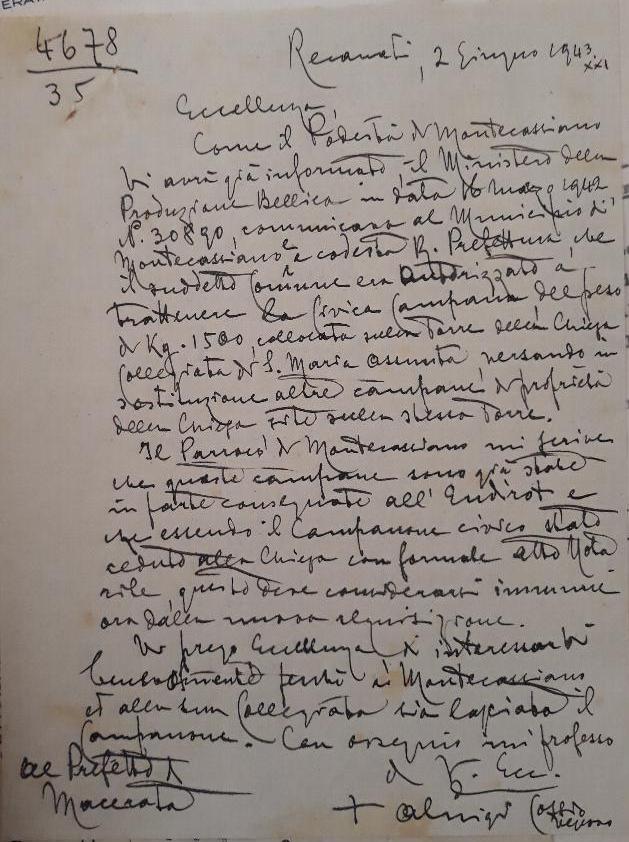 4678
35
Recanati, 2 Giugno 1943 XXI
Eccellenza,
Come il Podestà di Montecassiano
Vi avrà già informato, il Ministero della
Produzione Bellica in data 16 marzo 1942
N. 30890, comunicava al Municipio di
Montecassiano e a codesta R. Prefettura, che
il suddetto Comune era autorizzato a
trattenere la Civica Campana del peso
di Kg. 1500, collocata sulla Torre della Chiesa
Collegiata di S. Maria Assunta versando in
sostituzione altre campane di proprietà
della Chiesa site sulla stessa Torre.
Il Parroco di Montecassiano mi scrive
che queste campane sono già state
in parte consegnate all'Endirot e
che essendo il Campanone civico stato
ceduto alla Chiesa con formale atto Nota
rile, questo deve considerarsi immune
ora dalla nuova requisizione.
Vi prego Eccellenza di interessarvi
benevolmente perché a Montecassiano
ed alla sua Collegiata sia lasciato il
Campanone. Con ossequio mi professo
di V. Ecc.
al Prefetto di
Macerata
+ Aluigi